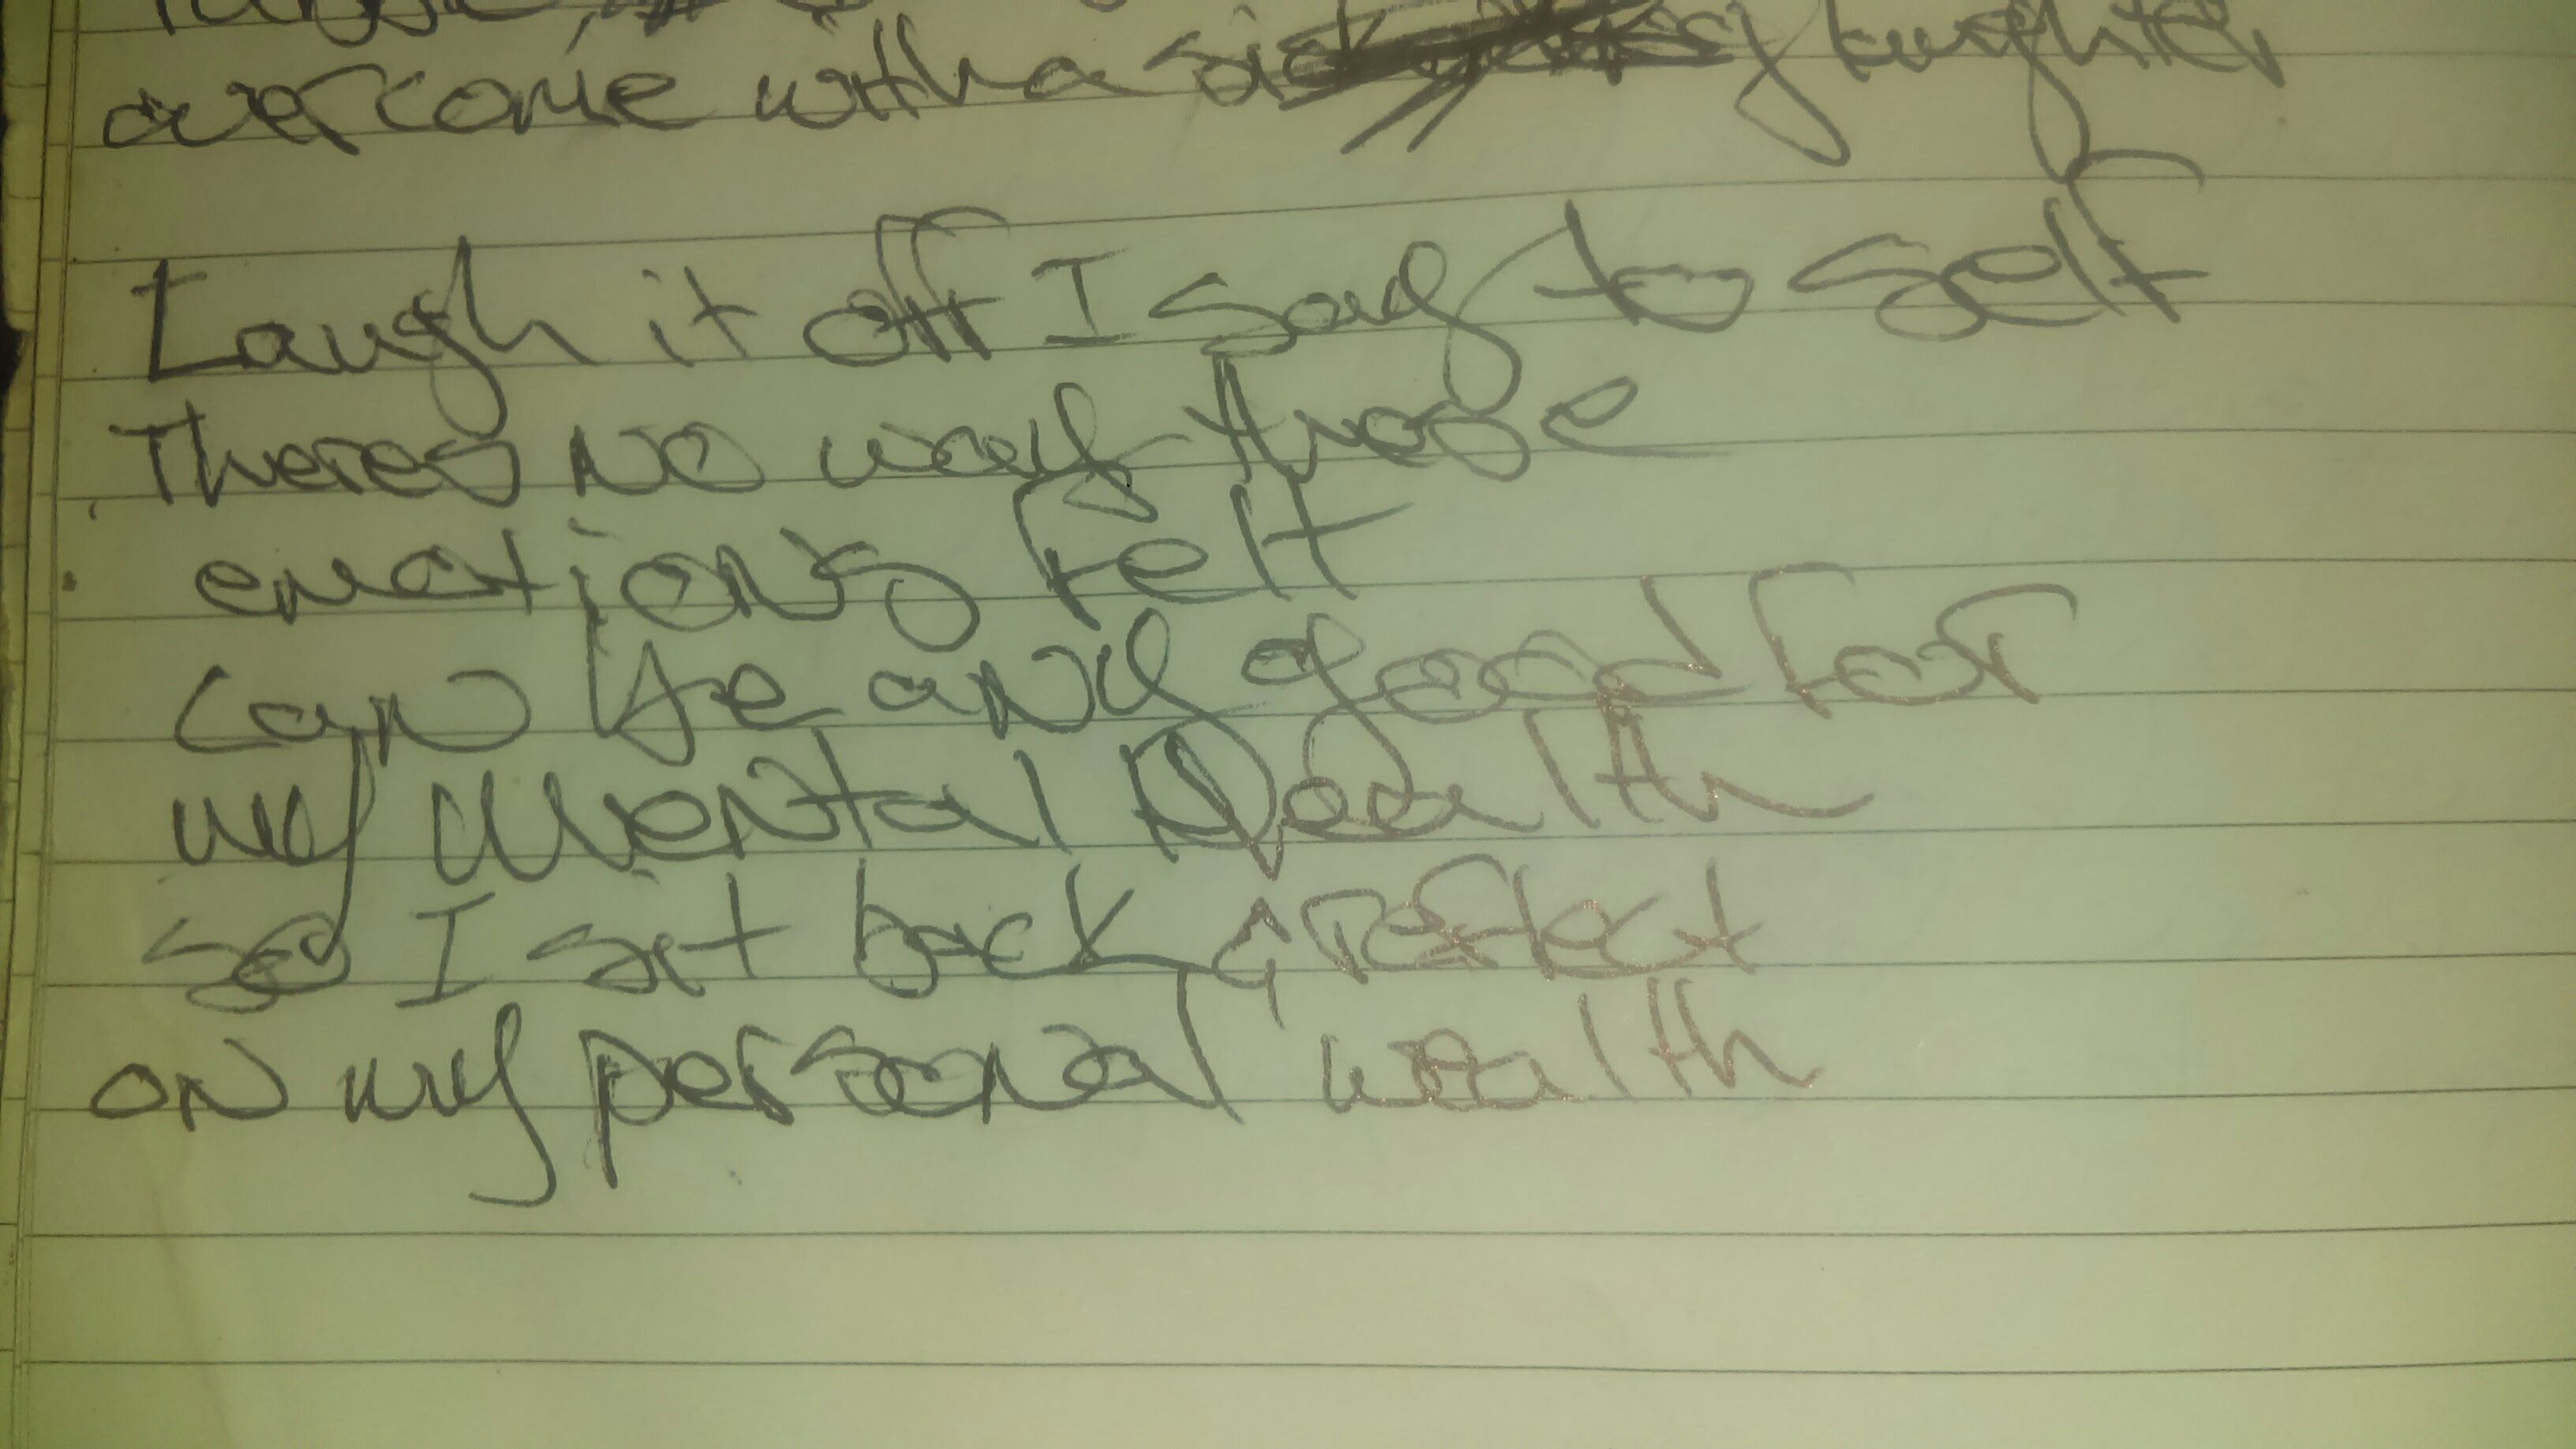 overcome with a laughter
Laugh it off I say to self
Theres no way those
emotions felt
can be any good for
my mental health
so I sit back & reflect
on my personal wealth